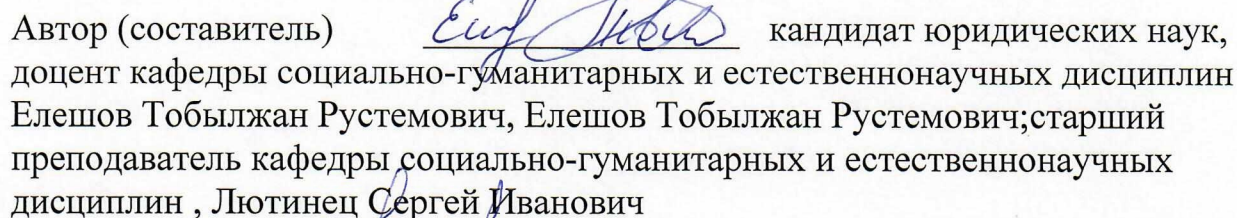 Автор (составитель) кандидат юридических наук,
доцент кафедры социально-гуманитарных и естественнонаучных дисциплин
Елешов Тобылжан Рустемович, Елешов Тобылжан Рустемович;старший
преподаватель кафедры социально-гуманитарных и естественнонаучных
дисциплин , Лютинец Сергей Иванович